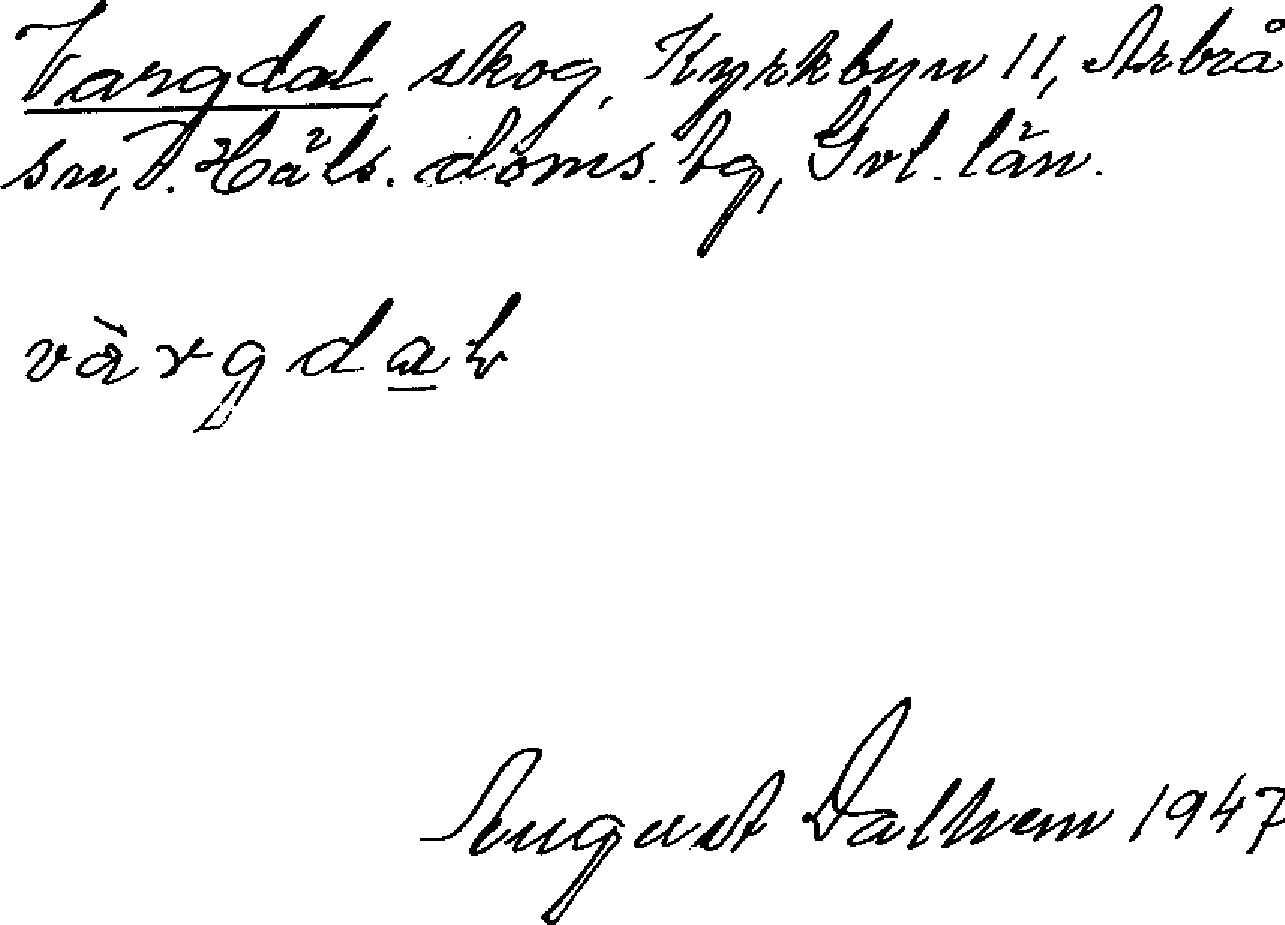 Vargdal, skog, Kyrkbyn 11, Arbrå
sn, V. Häls. doms. tg, Gvl. län.
vàrgdaɫ
August Dalhem 1947